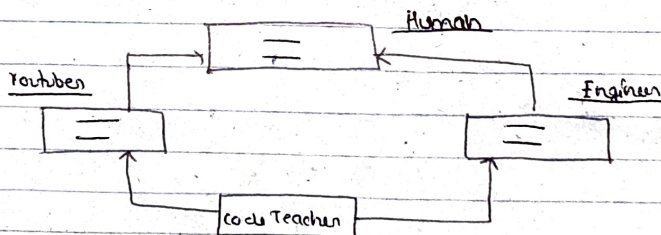 Human
Youtuber
Engineer
code Teacher